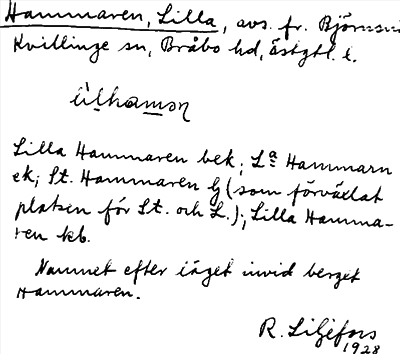 Hammaren, Lilla, avs. fr. Björnsn
Kvillinge sn, Bråbo hd, östgtl. l.
Lilla Hammaren bek; La Hammarn
ek; St. Hammaren lj (som förväxlat
platsen för St. och L.); Lilla Hamma-
ren kb.
Namnet efter läget invid berget
Hammaren.
R. Liljefors
1928